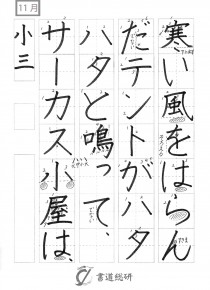 11月
寒い風をはらん
だテントがハタ
ハタと鳴って、
サーカス小屋は、
小三
書道総研